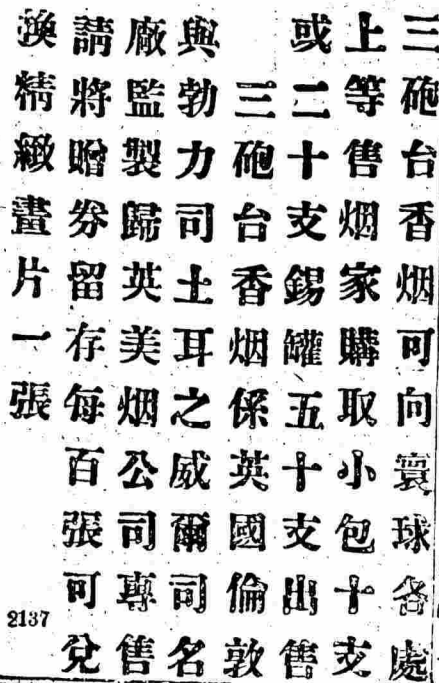 三砲台香烟可向寰球各處
上等售烟家購取小包十支
或二十支錫罐五十支出售
三砲台香烟係英國倫敦
與勃力司土耳之威爾司名
廠監製歸英美烟公司專售
請將贈券留存每百張可兌
換精緻畫片一張
2137